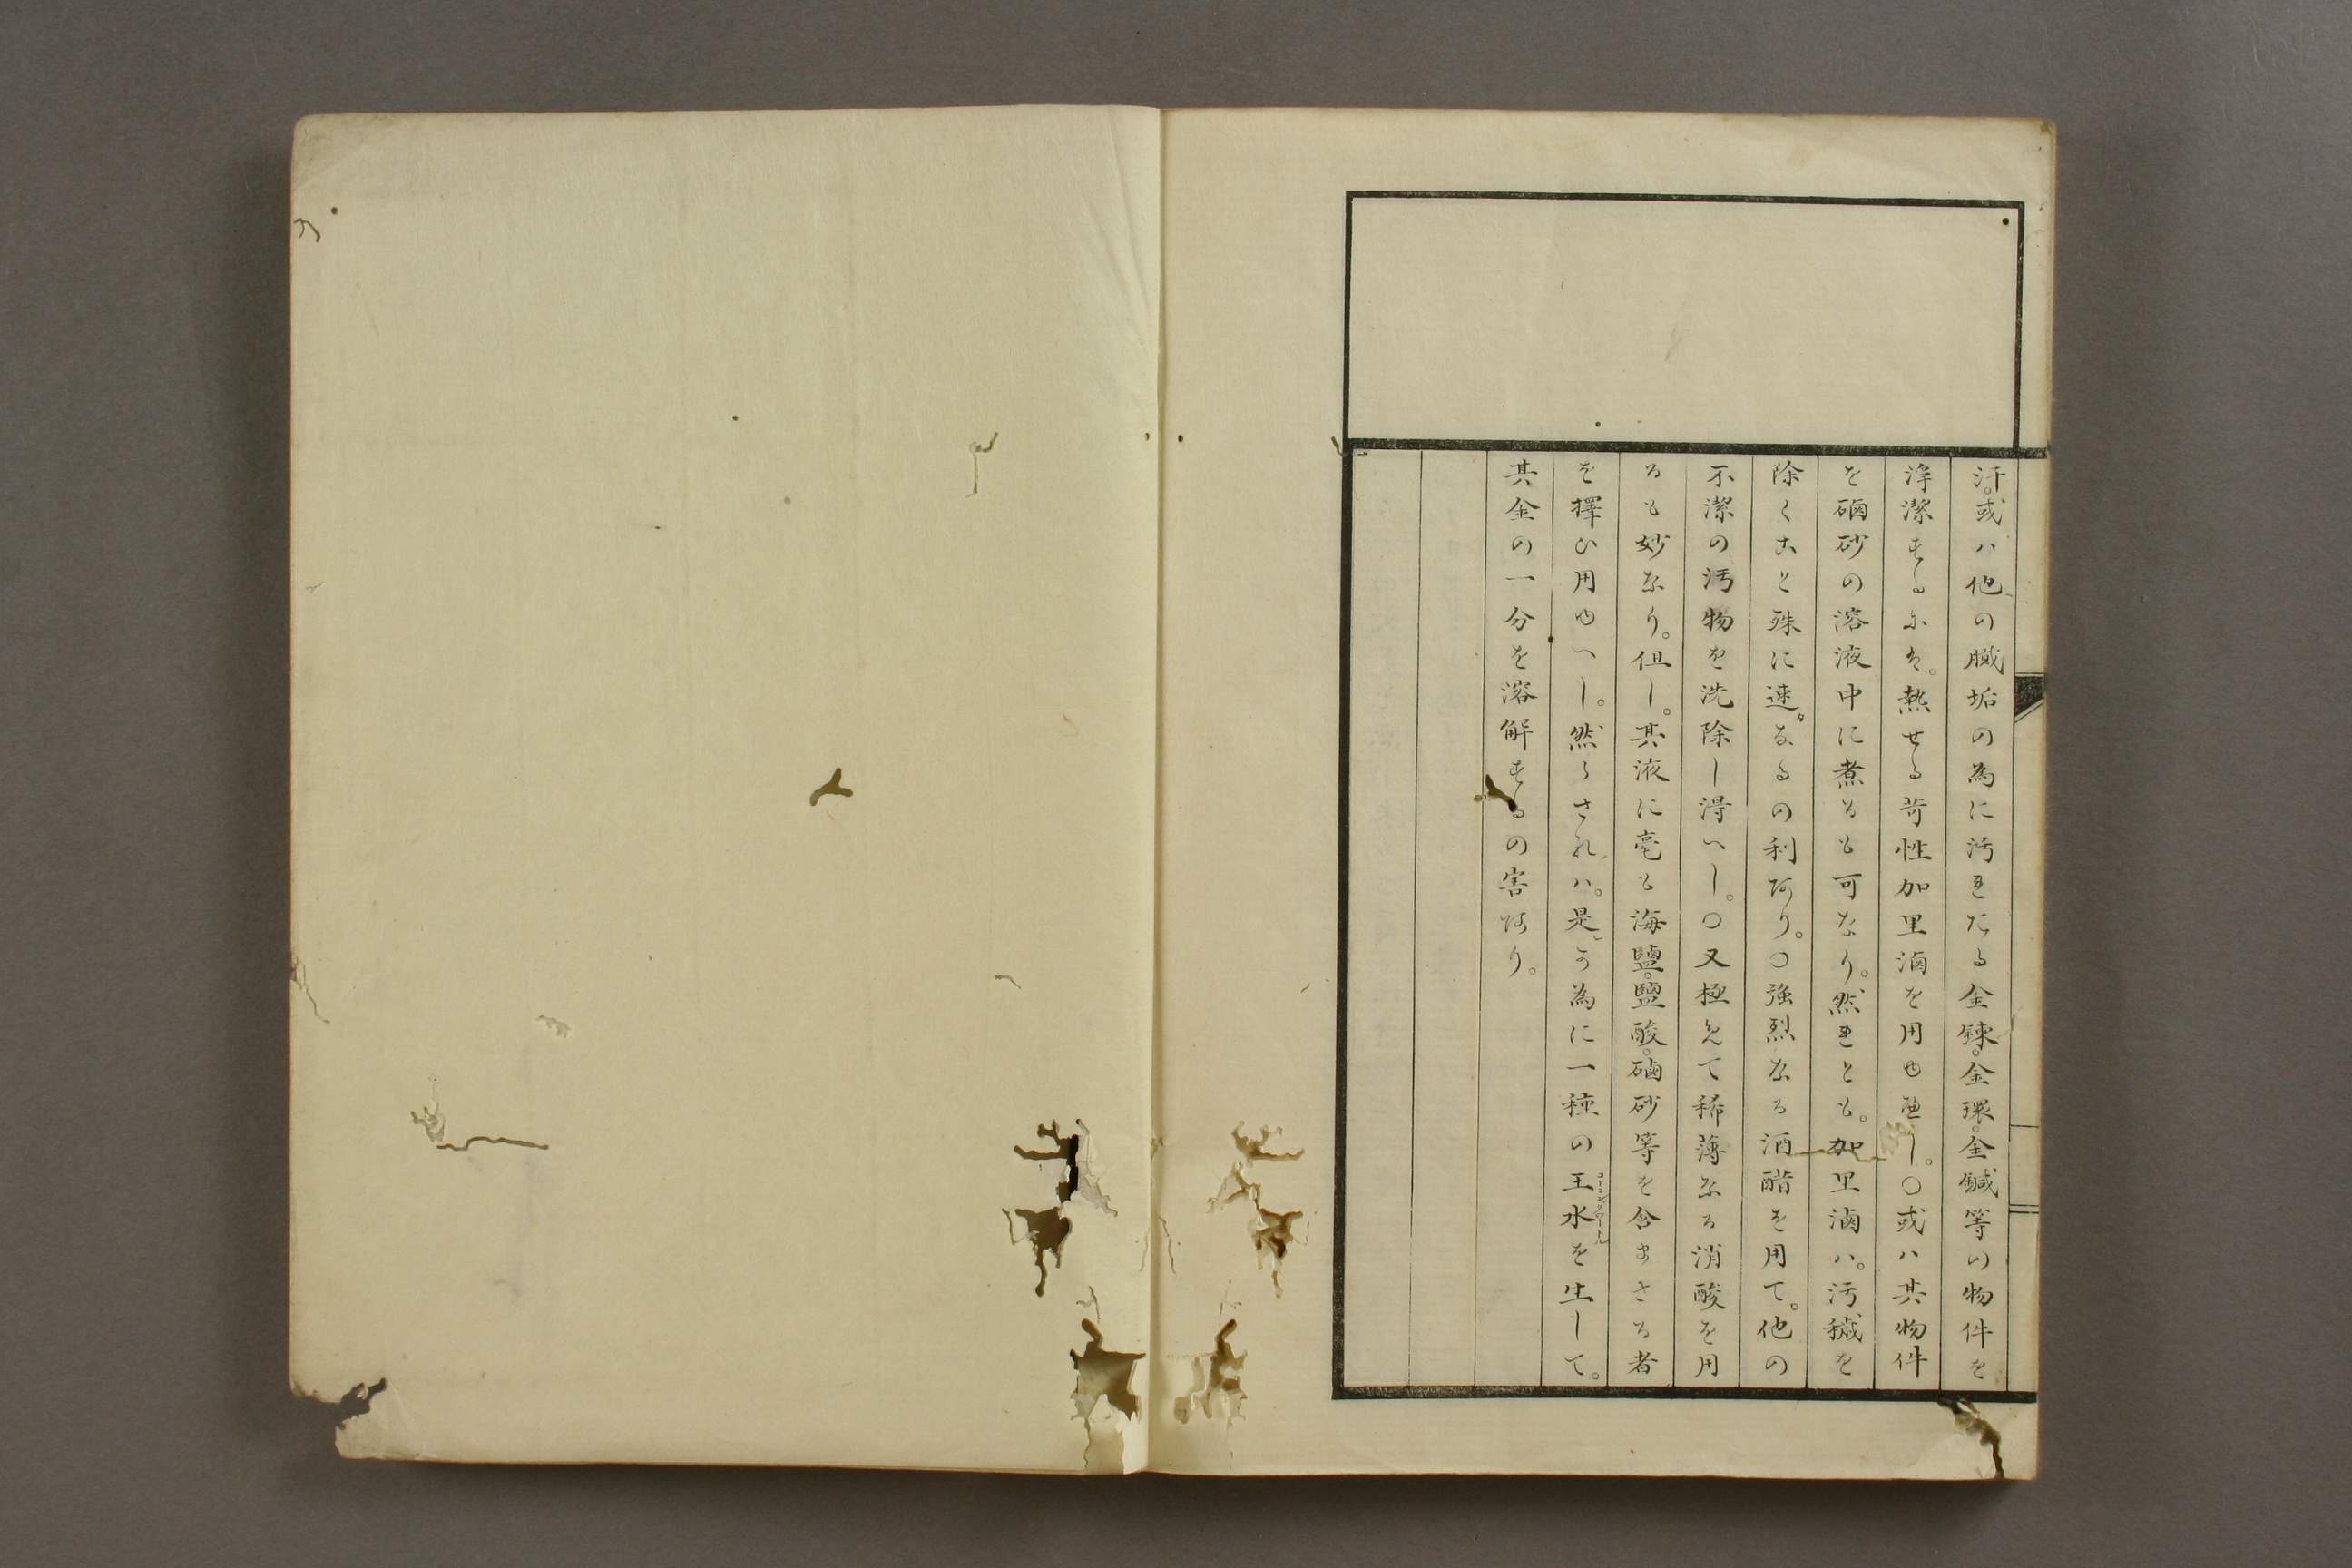 汗。或ハ他の膱垢の為に汚れたる金錬。金環。金鍼等の物件を
浄潔するには。熱せる苛性加里滷を用ゆべし。〇或ハ其物件
を磠砂の溶液中に煮るも可なり。然れとも。加里滷ハ。汚穢を
除くこと殊に速かなるの利あり。〇強烈なる酒醋を用て。他の
不潔の汚物を洗除し得へし。〇又極めて稀薄なる消酸を用
るも妙なり。但し。其液に毫も海鹽。鹽酸。磠砂等を含まさる者
を擇ひ用ゆへし。然らされハ。是か為に一種の王水を生して。
コーニングワートル
其金の一分を溶解するの害あり。